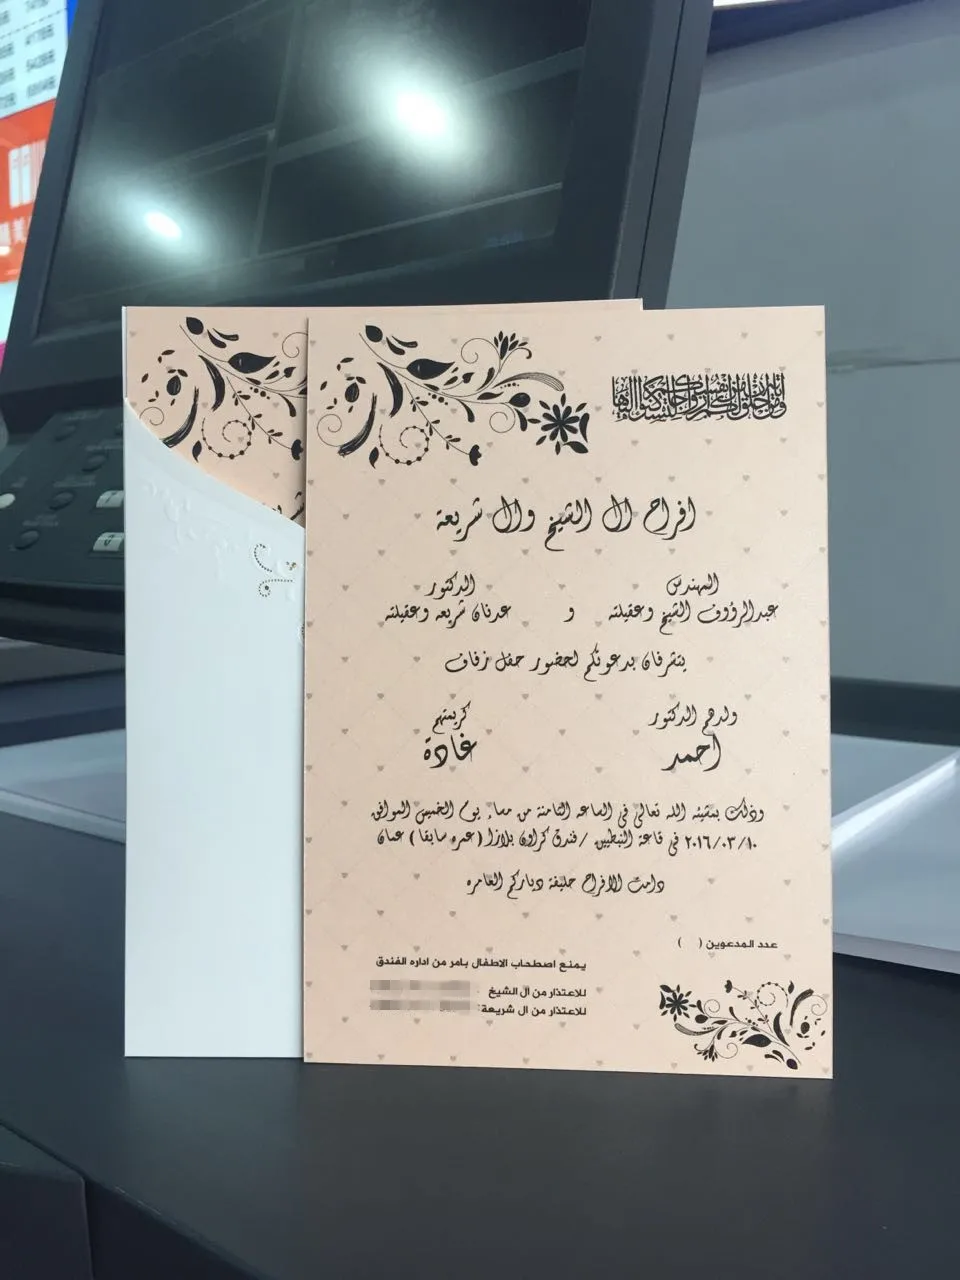 ومن آياته أن خلق لكم من أنفسكم أزواجا لتسكنوا إليها
افراح ال الشيخ وال شريعة
المهندس
عبدالرؤوف الشيخ وعقيلته
و
الدكتور
عدنان شريعه وعقيلته
يتشرفان بدعوتكم لحضور حفل زفاف
ولدهم الدكتور
احمد
كريمتهم
غادة
وذلك بمشيئه الله تعالى في الساعه الثامنة من مساء يوم الخميس الموافق
٢٠١٦/٠٣/١٠ في قاعة النبطيين /فندق كراون بلازا ( عمره سابقا ) عمان
دامت الافراح حليفة دياركم العامره
عدد المدعوين ( )
يمنع اصطحاب الاطفال بامر من اداره الفندق
للاعتذار من ال الشيخ :
للاعتذار من ال شريعة: